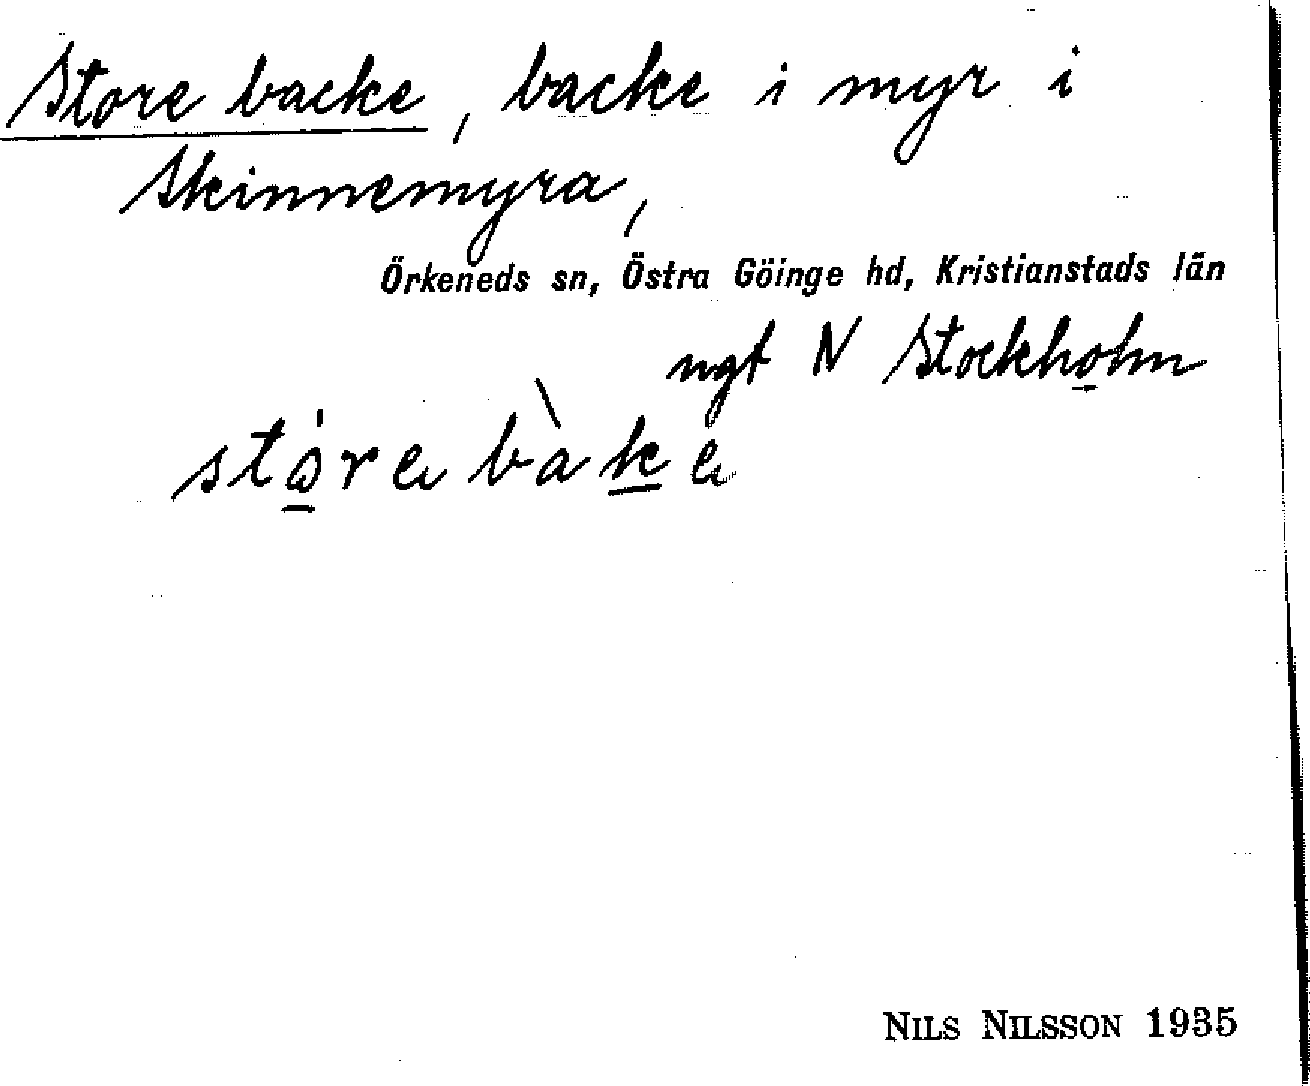 Store backe, backe i myr i
Skinnemyra,
Örkeneds sn, Östra Göinge hd, Kristianstads län
ngt N Stockholm
NILS NILSSON 1935